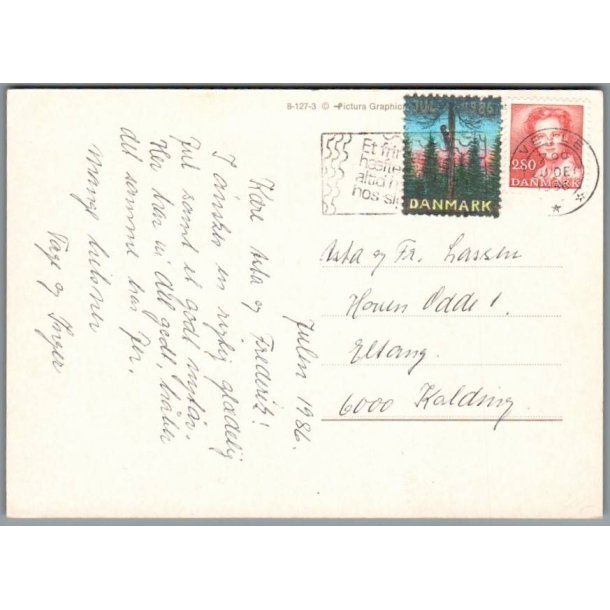 8-127-3 © Pictura Graphic
JUL 1986
DANMARK
2.80
DANMARK
VEJLE
Et fri
hæfte
altid
hos si
Julen 1986.
Kære Asta og Frederik!
I ønskes en rigtig glædelig
Jul samt et godt nytår.
Her har vi det godt, håber
det samme hos Jer.
Mange hilsner
Tage og Inger
Asta og Fr. Lassen
Houen Odde 1.
Eltang.
6000 Kolding